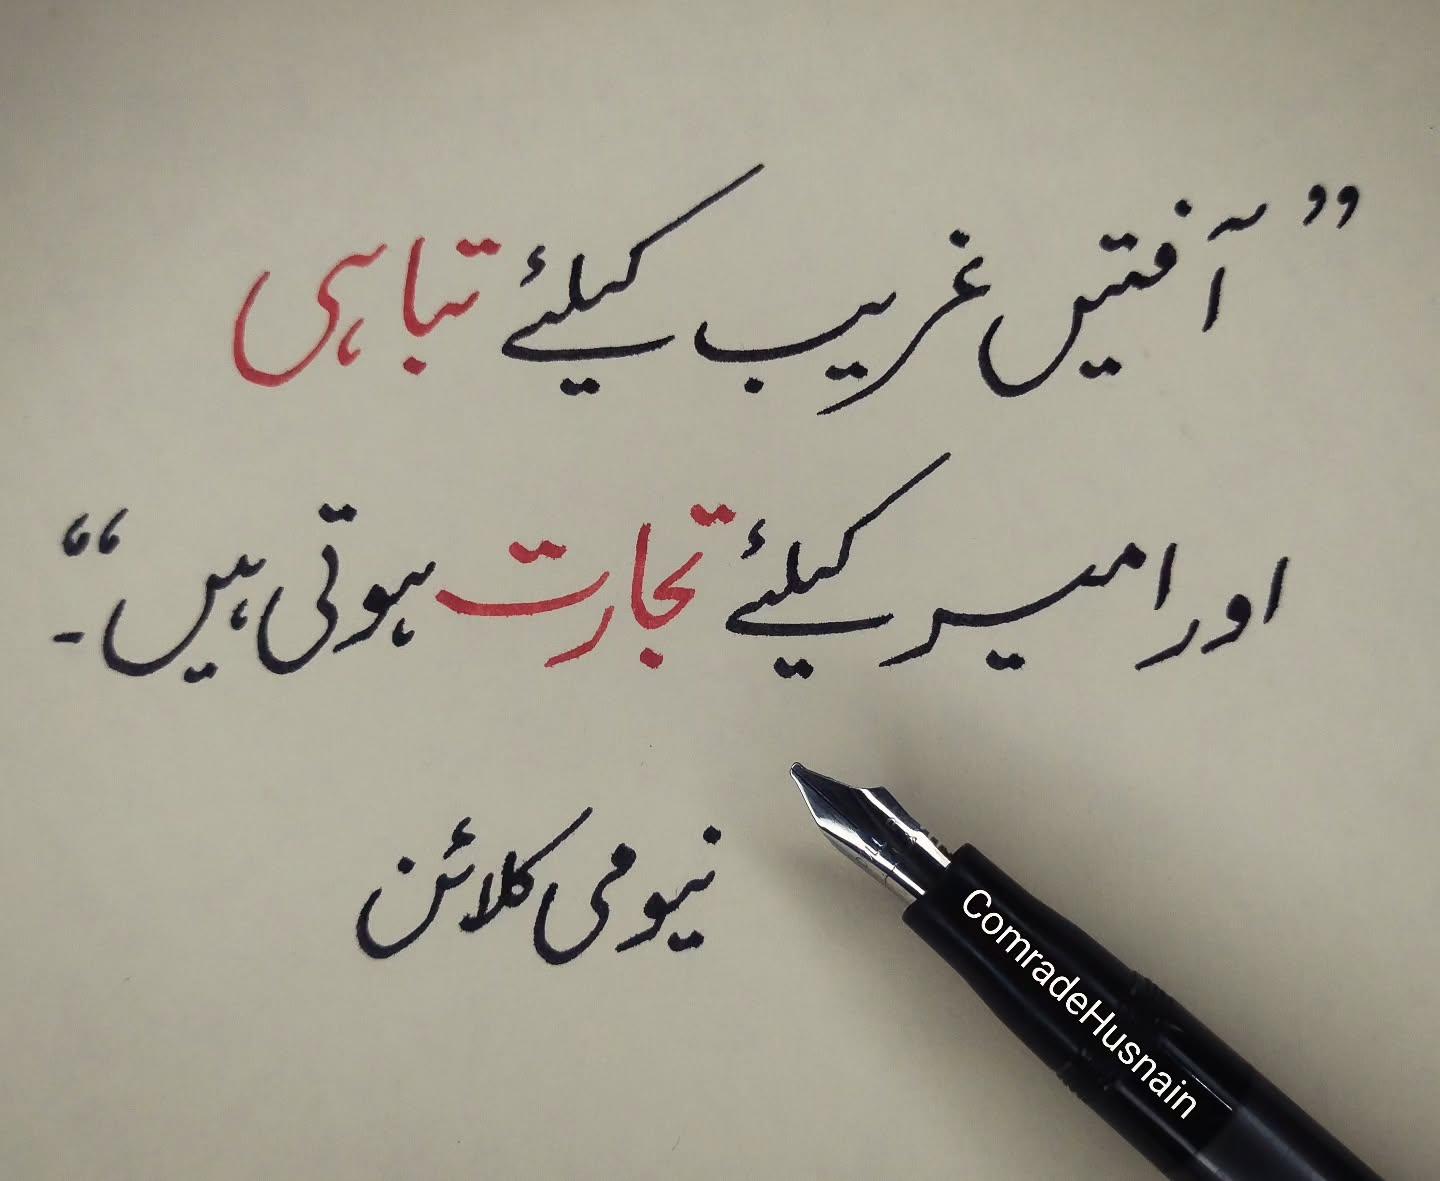 ”آفتیں غریب کیلئے تباہی
اور امیر کیلئے تجارت ہوتی ہیں“۔
نیومی کلائن
ComradeHusnain